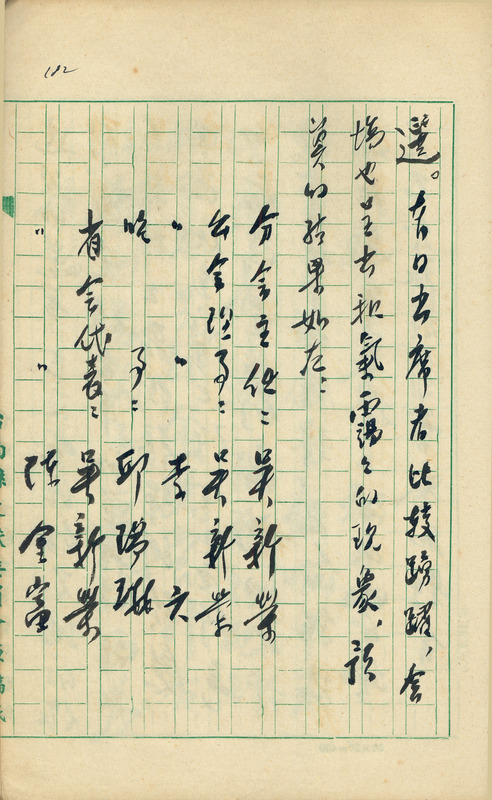 182
選。本日出席者比較踴躍,會
場也呈出和氣靄々的現象,改
選的結果如左:
分會主任: 吳新榮
公會理事: 吳新榮
〃 〃 李六
監 事: 邱瑞琳
省會代表: 吳新榮
〃 〃 陳金富